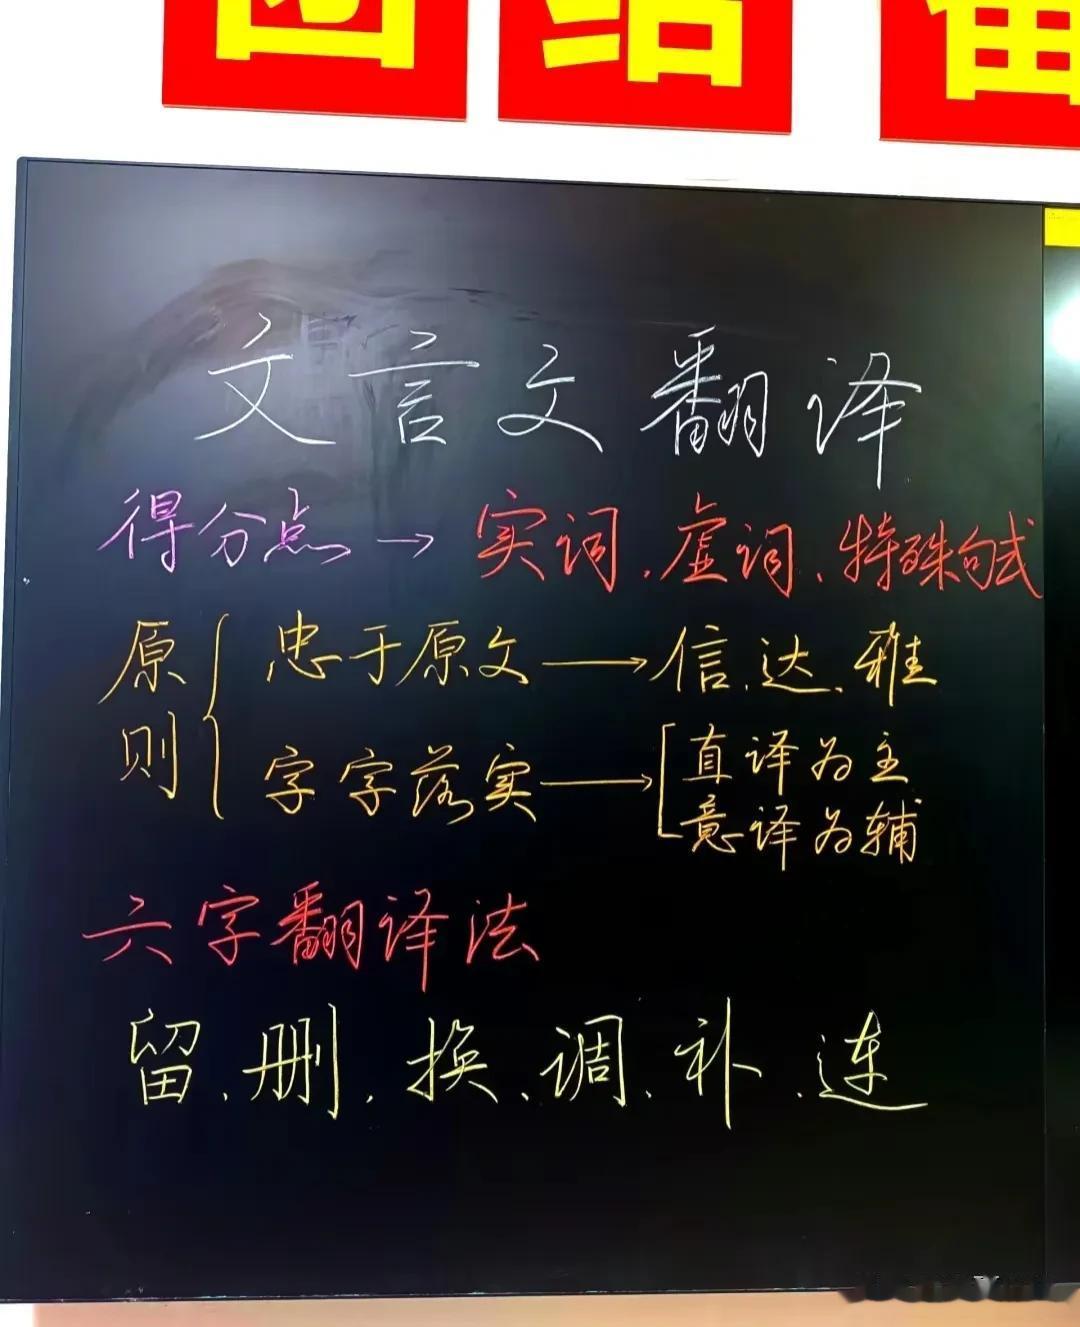 团结
文言文翻译
得分点→实词、虚词、特殊句式
原则
忠于原文→信、达、雅
字字落实→直译为主
意译为辅
六字翻译法
留、删、换、调、补、连